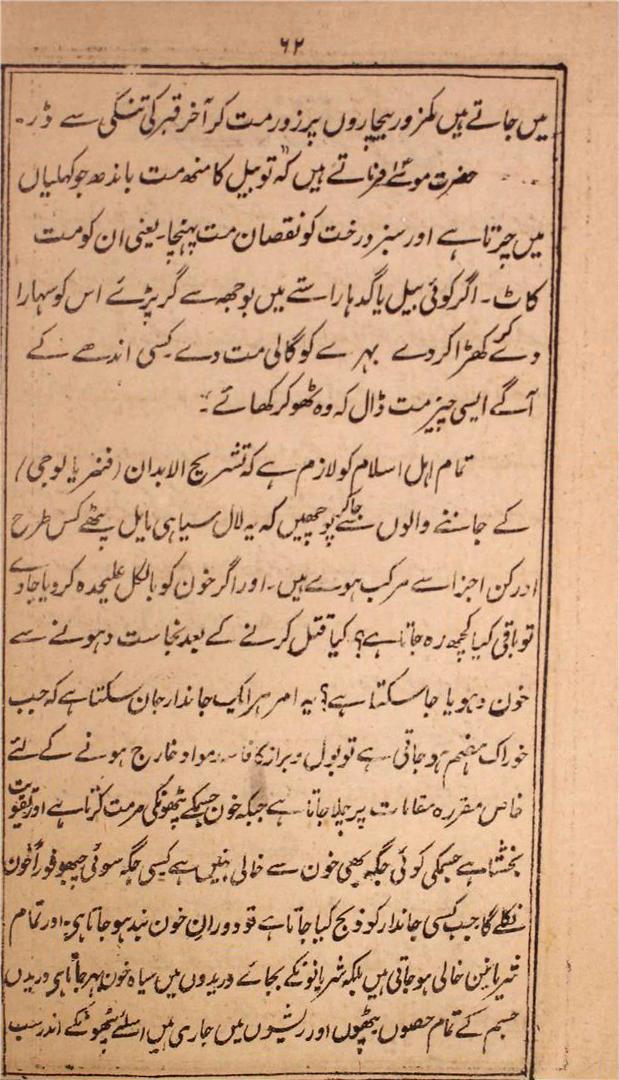 ۶۲
میں جاتے ہیں کمزور بیچاروں پر زور مت کر آخر قبر کی تنگی سے ڈر۔
حضرت موسےٰ فرماتے ہیں کہ تو بیل کا منھ مت باندھ جو کھلیاں
میں چرتا ہے اور سبز درخت کو نقصان مت پہنچا۔ یعنی ان کو مت
کاٹ۔ اگر کوئی بیل یا گدہا راستے میں بوجھ سے گر پڑے اس کو سہارا
دے کر کھڑا کر دے بہرے کو گالی مت دے کسی اندھے کے
آگے ایسی چیز مت ڈال کہ وہ ٹھوکر کھائے۔
تمام اہل اسلام کو لازم ہے کہ تشریح الابدان (فنریالوجی)
کے جاننے والوں سے جاکر پوچھیں کہ یہ لال سیاہی مایل پٹھے کس طرح
اور کن اجزا سے مرکب ہوے ہیں۔ اور اگر خون کو بالکل علیحدہ کر دیا جاوے
تو باقی کیا کچھ رہ جاتا ہے؟ کیا قتل کرنے کے بعد نجاست دہونے سے
خون دہویا جا سکتا ہے؟ یہ امر ہر ایک جاندار جان سکتا ہے کہ جب
خوراک ہضم ہو جاتی ہے تو بول و براز کا فاسد مواد خارج ہونے کے لئے
خاص مقررہ مقامات پر چلا جاتا ہے جبکہ خون جسم کے پٹھونکی مرمت کرتا ہے اور تقویت
بخشتا ہے جسمکی کوئی جگہ بھی خون سے خالی نہیں ہے کسی جگہ سوئی چبھو فوراً خون
نکلے گا۔ جب کسی جاندار کو ذبح کیا جاتا ہے تو دوران خون بند ہو جاتا ہی۔ اور تمام
شریانین خالی ہو جاتی ہیں بلکہ شریانونکے بجائے وریدوں میں سیاہ خون بہر جاتا ہی وریدیں
جسم کے تمام حصوں پٹھوں اور ریشوں میں جاری ہیں اسلئے پٹھونکے اندر سب